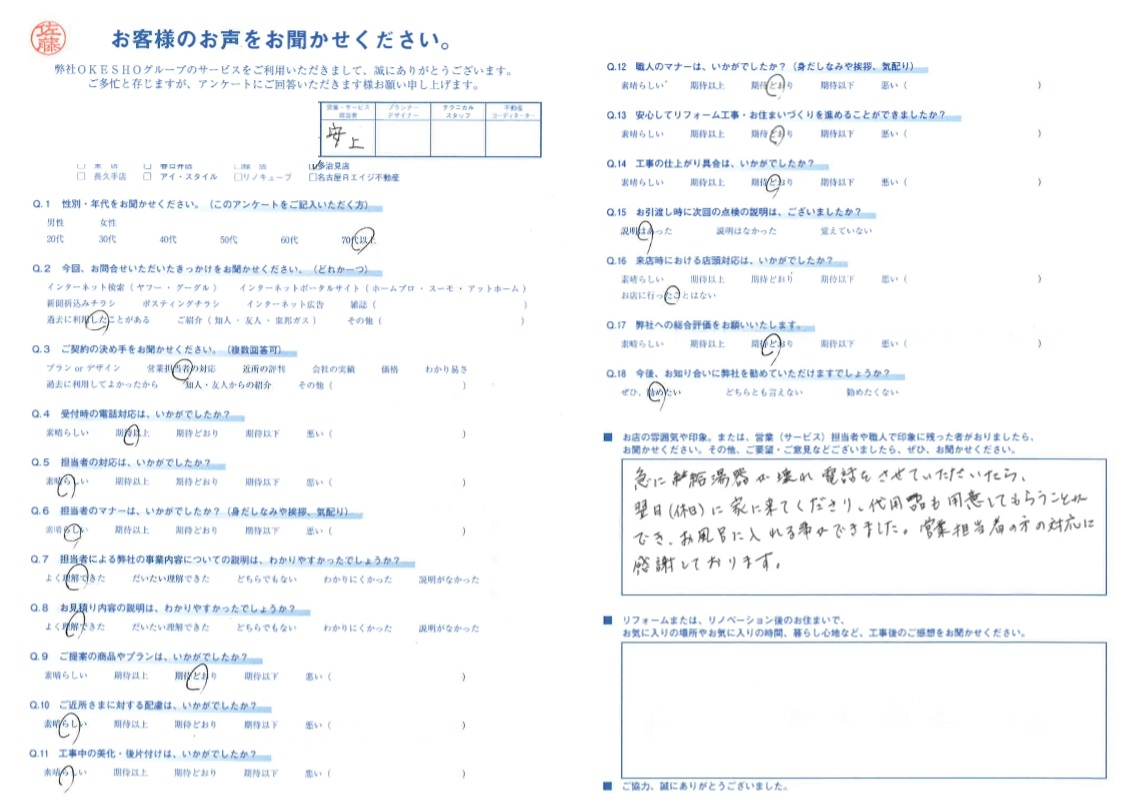 佐藤
お客様のお声をお聞かせください。
弊社OKESHOグループのサービスをご利用いただきまして、誠にありがとうございます。
ご多忙と存じますが、アンケートにご回答いただきます様お願い申し上げます。
営業・サービス担当者 プランナーデザイナー テクニカルスタッフ 不動産コーディネーター
安上
□ 本 店 □ 春日井店 □緑 店 □多治見店
□ 長久手店 □ アイ・スタイル □リノキューブ □名古屋Rエイジ不動産
Q.1 性別・年代をお聞かせください。（このアンケートをご記入いただく方）
男性 女性
20代 30代 40代 50代 60代 70代以上
Q.2 今回、お問合せいただいたきっかけをお聞かせください。（どれか一つ）
インターネット検索（ ヤフー ・ グーグル ） インターネットポータルサイト（ ホームプロ ・ スーモ ・ アットホーム ）
新聞折込みチラシ ポスティングチラシ インターネット広告 雑誌（ ）
過去に利用したことがある ご紹介（ 知人 ・ 友人 ・ 東邦ガス ） その他（ ）
Q.3 ご契約の決め手をお聞かせください。（複数回答可）
プラン or デザイン 営業担当者の対応 近所の評判 会社の実績 価格 わかり易さ
過去に利用してよかったから 知人・友人からの紹介 その他（ ）
Q.4 受付時の電話対応は、いかがでしたか？
素晴らしい 期待以上 期待どおり 期待以下 悪い（ ）
Q.5 担当者の対応は、いかがでしたか？
素晴らしい 期待以上 期待どおり 期待以下 悪い（ ）
Q.6 担当者のマナーは、いかがでしたか？（身だしなみや挨拶、気配り）
素晴らしい 期待以上 期待どおり 期待以下 悪い（ ）
Q.7 担当者による弊社の事業内容についての説明は、わかりやすかったでしょうか？
よく理解できた だいたい理解できた どちらでもない わかりにくかった 説明がなかった
Q.8 お見積り内容の説明は、わかりやすかったでしょうか？
よく理解できた だいたい理解できた どちらでもない わかりにくかった 説明がなかった
Q.9 ご提案の商品やプランは、いかがでしたか？
素晴らしい 期待以上 期待どおり 期待以下 悪い（ ）
Q.10 ご近所さまに対する配慮は、いかがでしたか？
素晴らしい 期待以上 期待どおり 期待以下 悪い（ ）
Q.11 工事中の美化・後片付けは、いかがでしたか？
素晴らしい 期待以上 期待どおり 期待以下 悪い（ ）
Q.12 職人のマナーは、いかがでしたか？（身だしなみや挨拶、気配り）
素晴らしい 期待以上 期待どおり 期待以下 悪い（ ）
Q.13 安心してリフォーム工事・お住まいづくりを進めることができましたか？
素晴らしい 期待以上 期待どおり 期待以下 悪い（ ）
Q.14 工事の仕上がり具合は、いかがでしたか？
素晴らしい 期待以上 期待どおり 期待以下 悪い（ ）
Q.15 お引渡し時に次回の点検の説明は、ございましたか？
説明はあった 説明はなかった 覚えていない
Q.16 来店時における店頭対応は、いかがでしたか？
素晴らしい 期待以上 期待どおり 期待以下 悪い（ ）
お店に行ったことはない
Q.17 弊社への総合評価をお願いいたします。
素晴らしい 期待以上 期待どおり 期待以下 悪い（ ）
Q.18 今後、お知り合いに弊社を勧めていただけますでしょうか？
ぜひ、勧めたい どちらとも言えない 勧めたくない
■ お店の雰囲気や印象。または、営業（サービス）担当者や職人で印象に残った者がおりましたら、
お聞かせください。その他、ご要望・ご意見などございましたら、ぜひ、お聞かせください。
急に給湯器が壊れ電話をさせていただいたら、
翌日(休日)に家に来てくださり、代用器も用意してもらうことが
でき、お風呂に入れる事ができました。営業担当者の方の対応に
感謝しております。
■ リフォームまたは、リノベーション後のお住まいで、
お気に入りの場所やお気に入りの時間、暮らし心地など、工事後のご感想をお聞かせください。
■ ご協力、誠にありがとうございました。